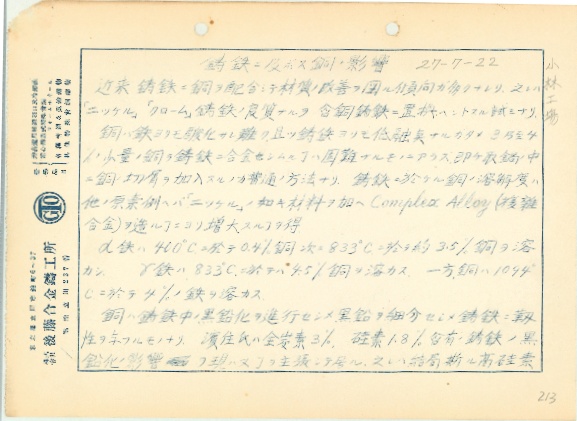 鋳鉄ニ及ボス銅ノ影響 27-7-22
小林工場
近来鋳鉄ニ銅ヲ配合シテ材質ノ改善ヲ図ル傾向ガ多クナリ、之レハ
「ニッケル」「クローム」鋳鉄ノ良質ナルヲ含銅鋳鉄ニ置換ヘントスル試ミナリ
銅ハ鉄ヨリモ酸化セシ難ク且ツ鋳鉄ヨリモ低融点ナルガタメ
ノ少量ノ銅ヲ鋳鉄ニ合金セシムル事ハ困難ナルモノニアラズ、即チ熔鋳中
ニ銅切屑ヲ加入スルノガ普通ノ方法ナリ 鋳鉄ニ於ケル銅ノ溶解度ハ
他ノ原素例ヘバ「ニッケル」ノ如キ材料ヲ加ヘ Complex Alloy (複雑
合金)ヲ造ル事ニヨリ増大スル事ヲ得
α鉄ハ 410°Cニ於テ 0.4%銅 次ニ 833°Cニ於テ約 3.5% 銅ヲ溶
カシ γ鉄ハ 833°Cニ於テハ 4.5% 銅ヲ溶カス 一方銅ハ 1094°
Cニ於テ 4%ノ鉄ヲ溶カス
銅ハ鋳鉄中ノ黒鉛化ヲ進行セシメ黒鉛ヲ細分セシメ鋳鉄ニ靱
性ヲ与フルモノナリ 濱住氏ハ全炭素 3%、硅素 1.8% 含有ノ鋳鉄ノ黒
鉛化ノ影響 ヲ現ハス事ヲ主張シテ居ル、之レハ結局斯ル高硅素
GTO
後藤合金鑄工所
213